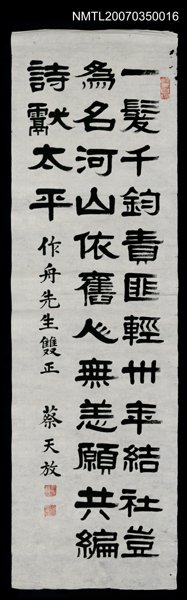 NMTL20070350016
一髮千鈞責匪輕卅年結社豈
為名河山依舊心無恙願共編
詩獻太平
作舟先生雙正
蔡天放